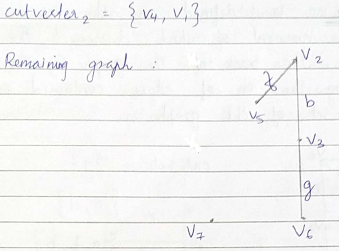 cutvertex₂ = {V₄, V₁}
Remaining graph :
V₂
V₅
b
V₃
g
V₇
V₆